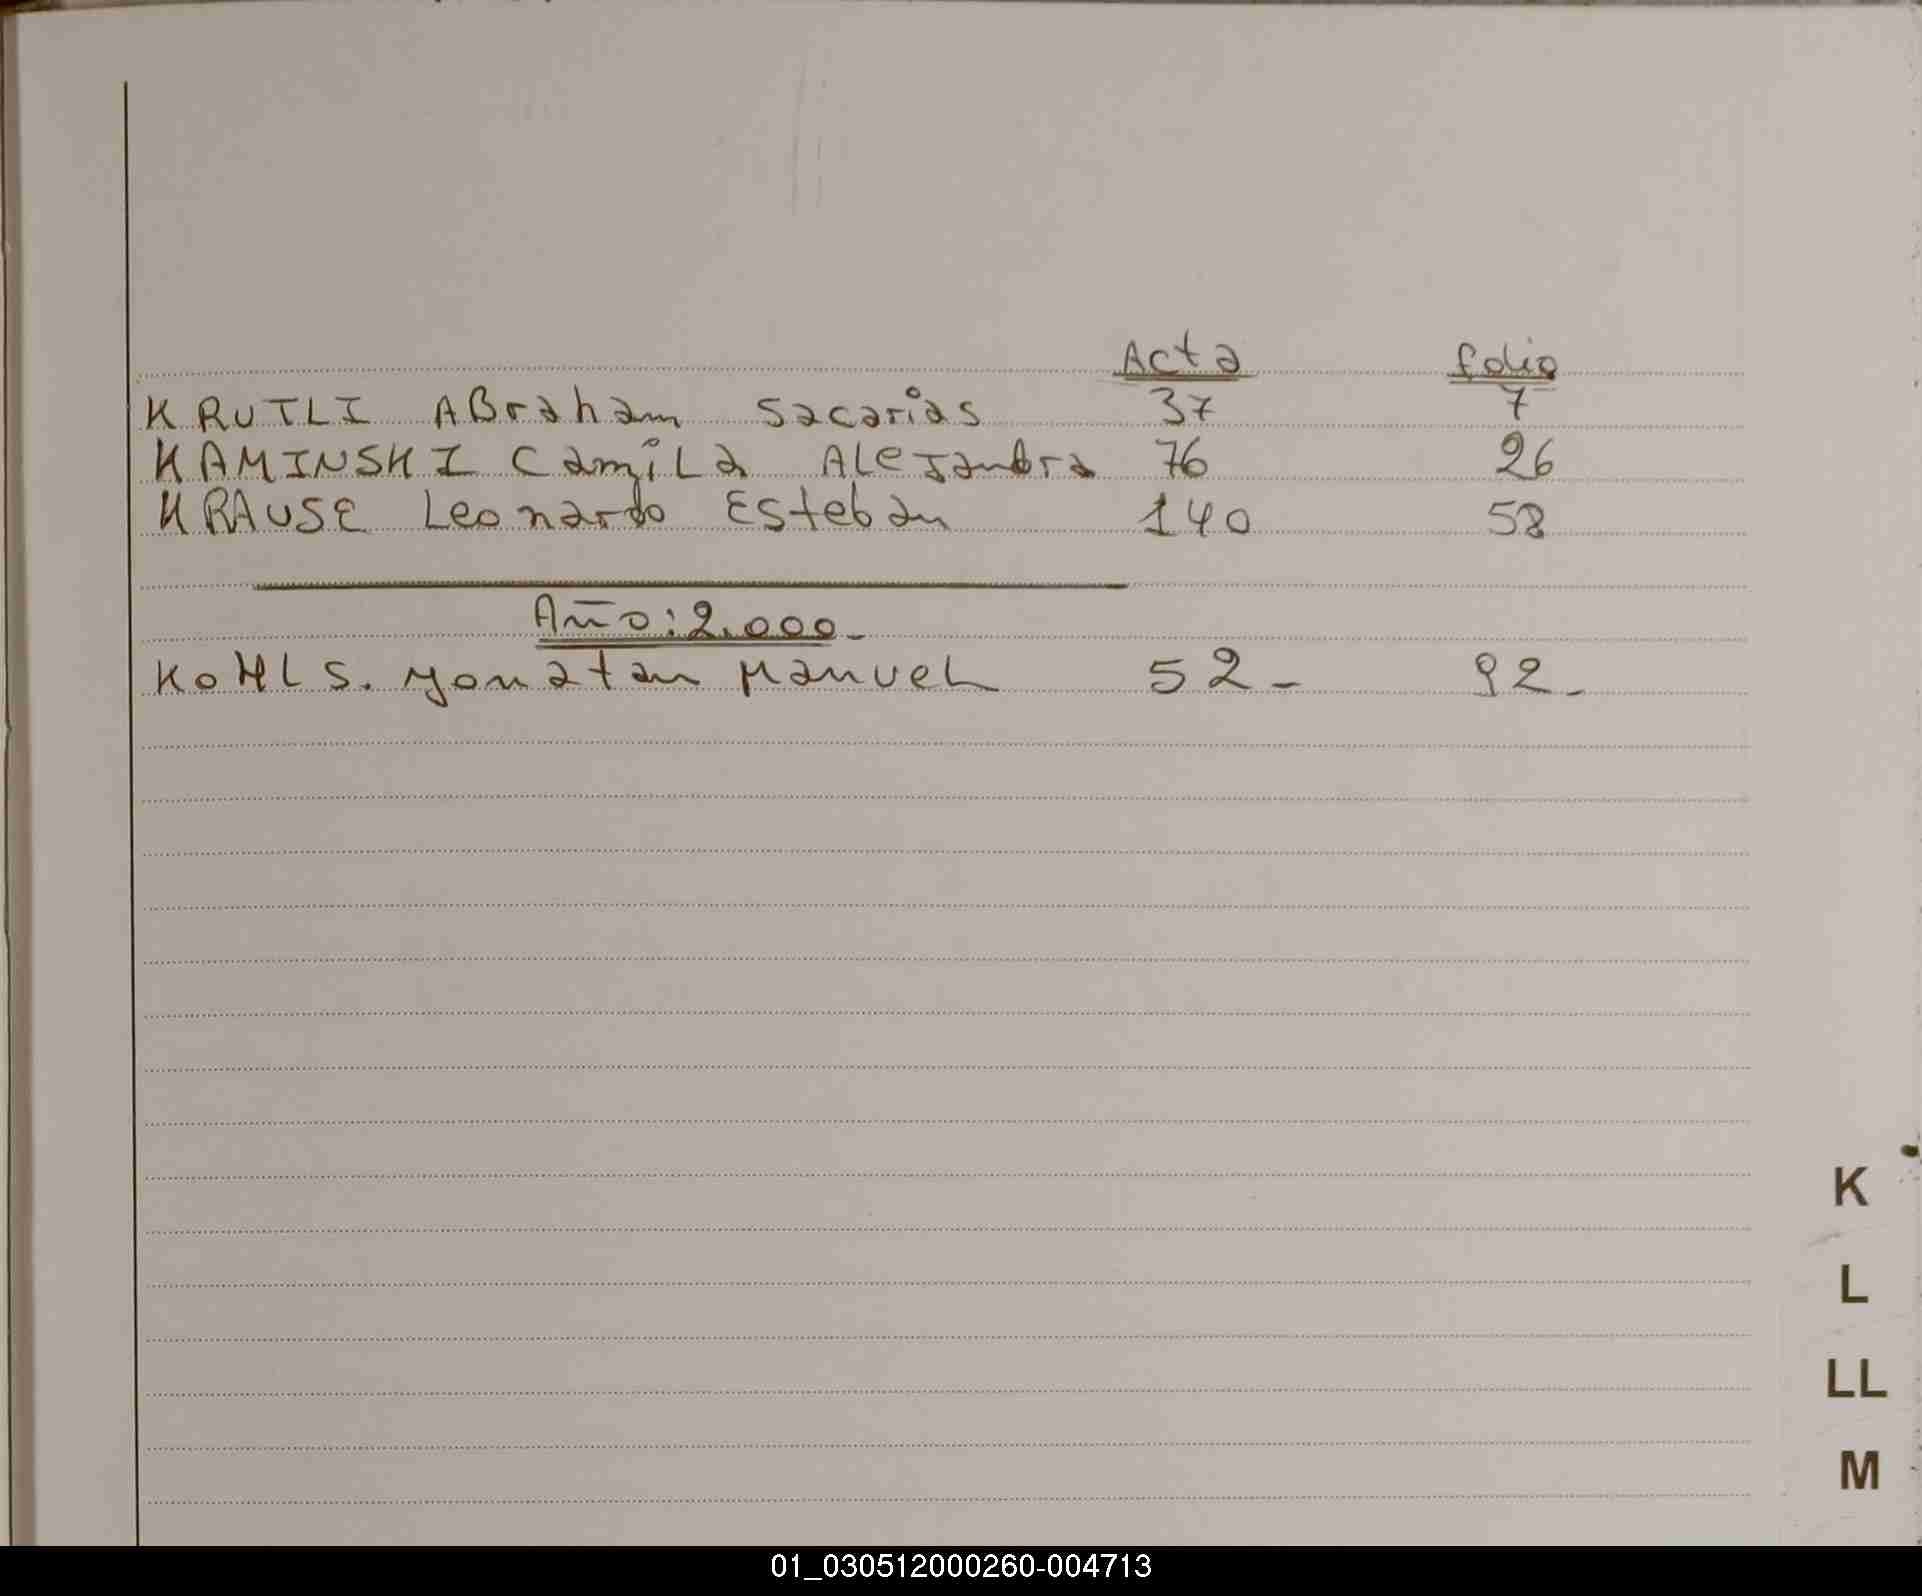 Acta folio
KRUTLI ABraham Sacarias 37 7
KAMINSKI Camila Alejandra 76 26
KRAUSE Leonardo Esteban 140 58
Año: 2.000.-
KOHLS. Yonatan Manuel 52- 92-
K
L
LL
M
01_030512000260-004713